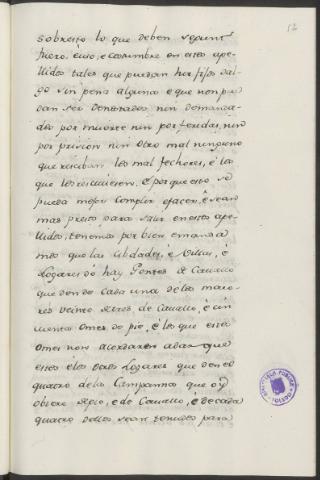 12
sobresto lo que deben segunt
fuero, é uso, e costumbre en estos ape-
llidos tales que puedan hir fijos dal-
go sin pena alguna e que non pue
dan ser denostados nin demanda-
dos por muerte nin por feridas, nin
por prision nin otro mal ninguno
que reciban los mal fechores, é los
que les rescivieren. E por que esto se
pueda mejor complir efacer, é sean
mas prestos para salir en estos ape-
llidos, tenemos por bien emanda
mos que las cibdades, é Villas, é
Logares do hay gentes de Cavallo
que den de cada una de las maio-
res veinte omes de Cavallo, é cin
cuenta omes de pie, é los que estos
omes non acordaren a dar que
estos é los otros Logares que den e
quatro de las Campannas que oy
obiere de pie, e de Cavallo, é de cada
quatro dellos sean tenudos para